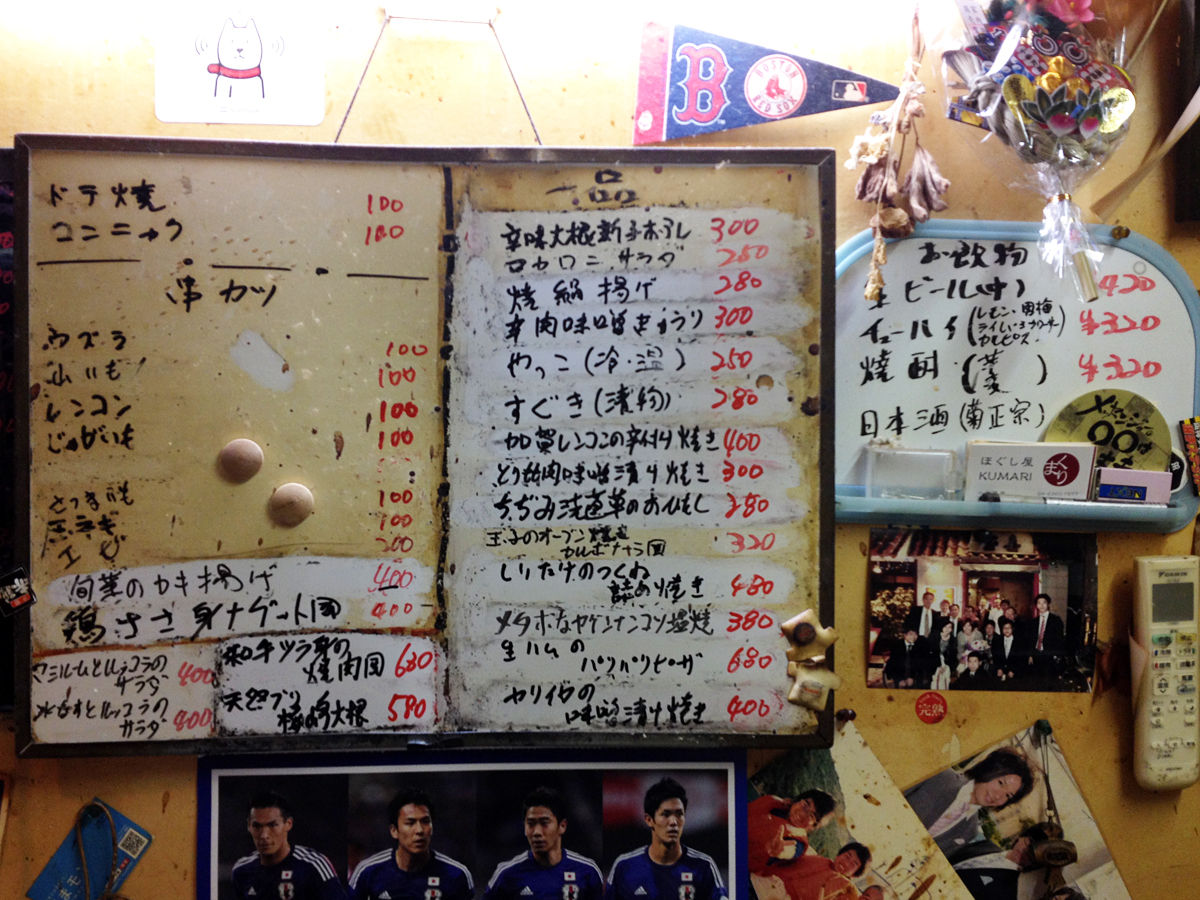 ドテ焼 100
コンニャク 100
串カツ
ウズラ 100
山いも 100
レンコン 100
じゃがいも 100
さつまいも 100
玉ネギ 100
エビ 200
旬菜のカキ揚げ 400
鶏ささ身ナゲット風 400
サラダ 400
水なすとルッコラの
サラダ 400
焼肉風 680
天然ブリ
大根 580
一品
辛味大根新子おろし 300
マカロニサラダ 250
焼絹揚げ 280
辛肉味噌きゅうり 300
やっこ(冷・温) 250
すぐき(漬物) 280
加賀レンコンの辛付け焼き 400
とり肉味噌漬け焼き 300
ちぢみ法蓮草のおひたし 280
玉子のオーブン焼き
カルボナーラ風 320
しいたけのつくね
詰め焼き 480
メタボなヤゲンナンコツ塩焼 380
生ハムの
パリパリピザ 680
ヤリイカの
味噌漬け焼き 400
B
BOSTON
RED SOX
お飲物
生ビール(中) 420
チューハイ(レモン・男梅
ライム・
カルピス) ¥320
焼酎(芋
麦) ¥320
日本酒(菊正宗)
ほぐし屋
KUMARI
まくり
完熟
DAIKIN